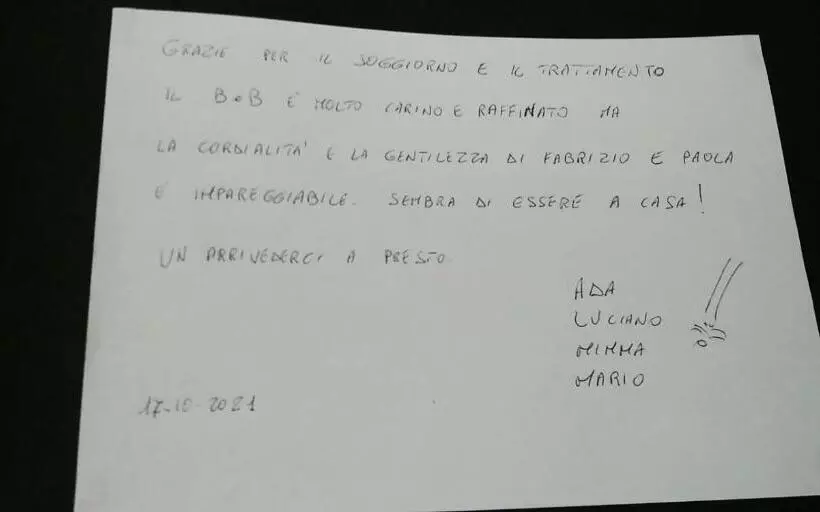 GRAZIE PER IL SOGGIORNO E IL TRATTAMENTO
IL B e B È MOLTO CARINO E RAFFINATO MA
LA CORDIALITA' E LA GENTILEZZA DI FABRIZIO E PAOLA
E' IMPAREGGIABILE. SEMBRA DI ESSERE A CASA!
UN ARRIVEDERCI A PRESTO
ADA
LUCIANO
MIMMA
MARIO
17-10-2021